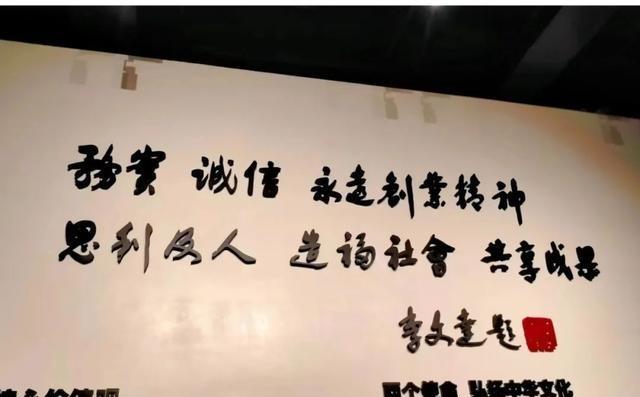 務實 誠信 永遠創業精神
思利及人 造福社會 共享成果
李文達題
弘扬中华文化